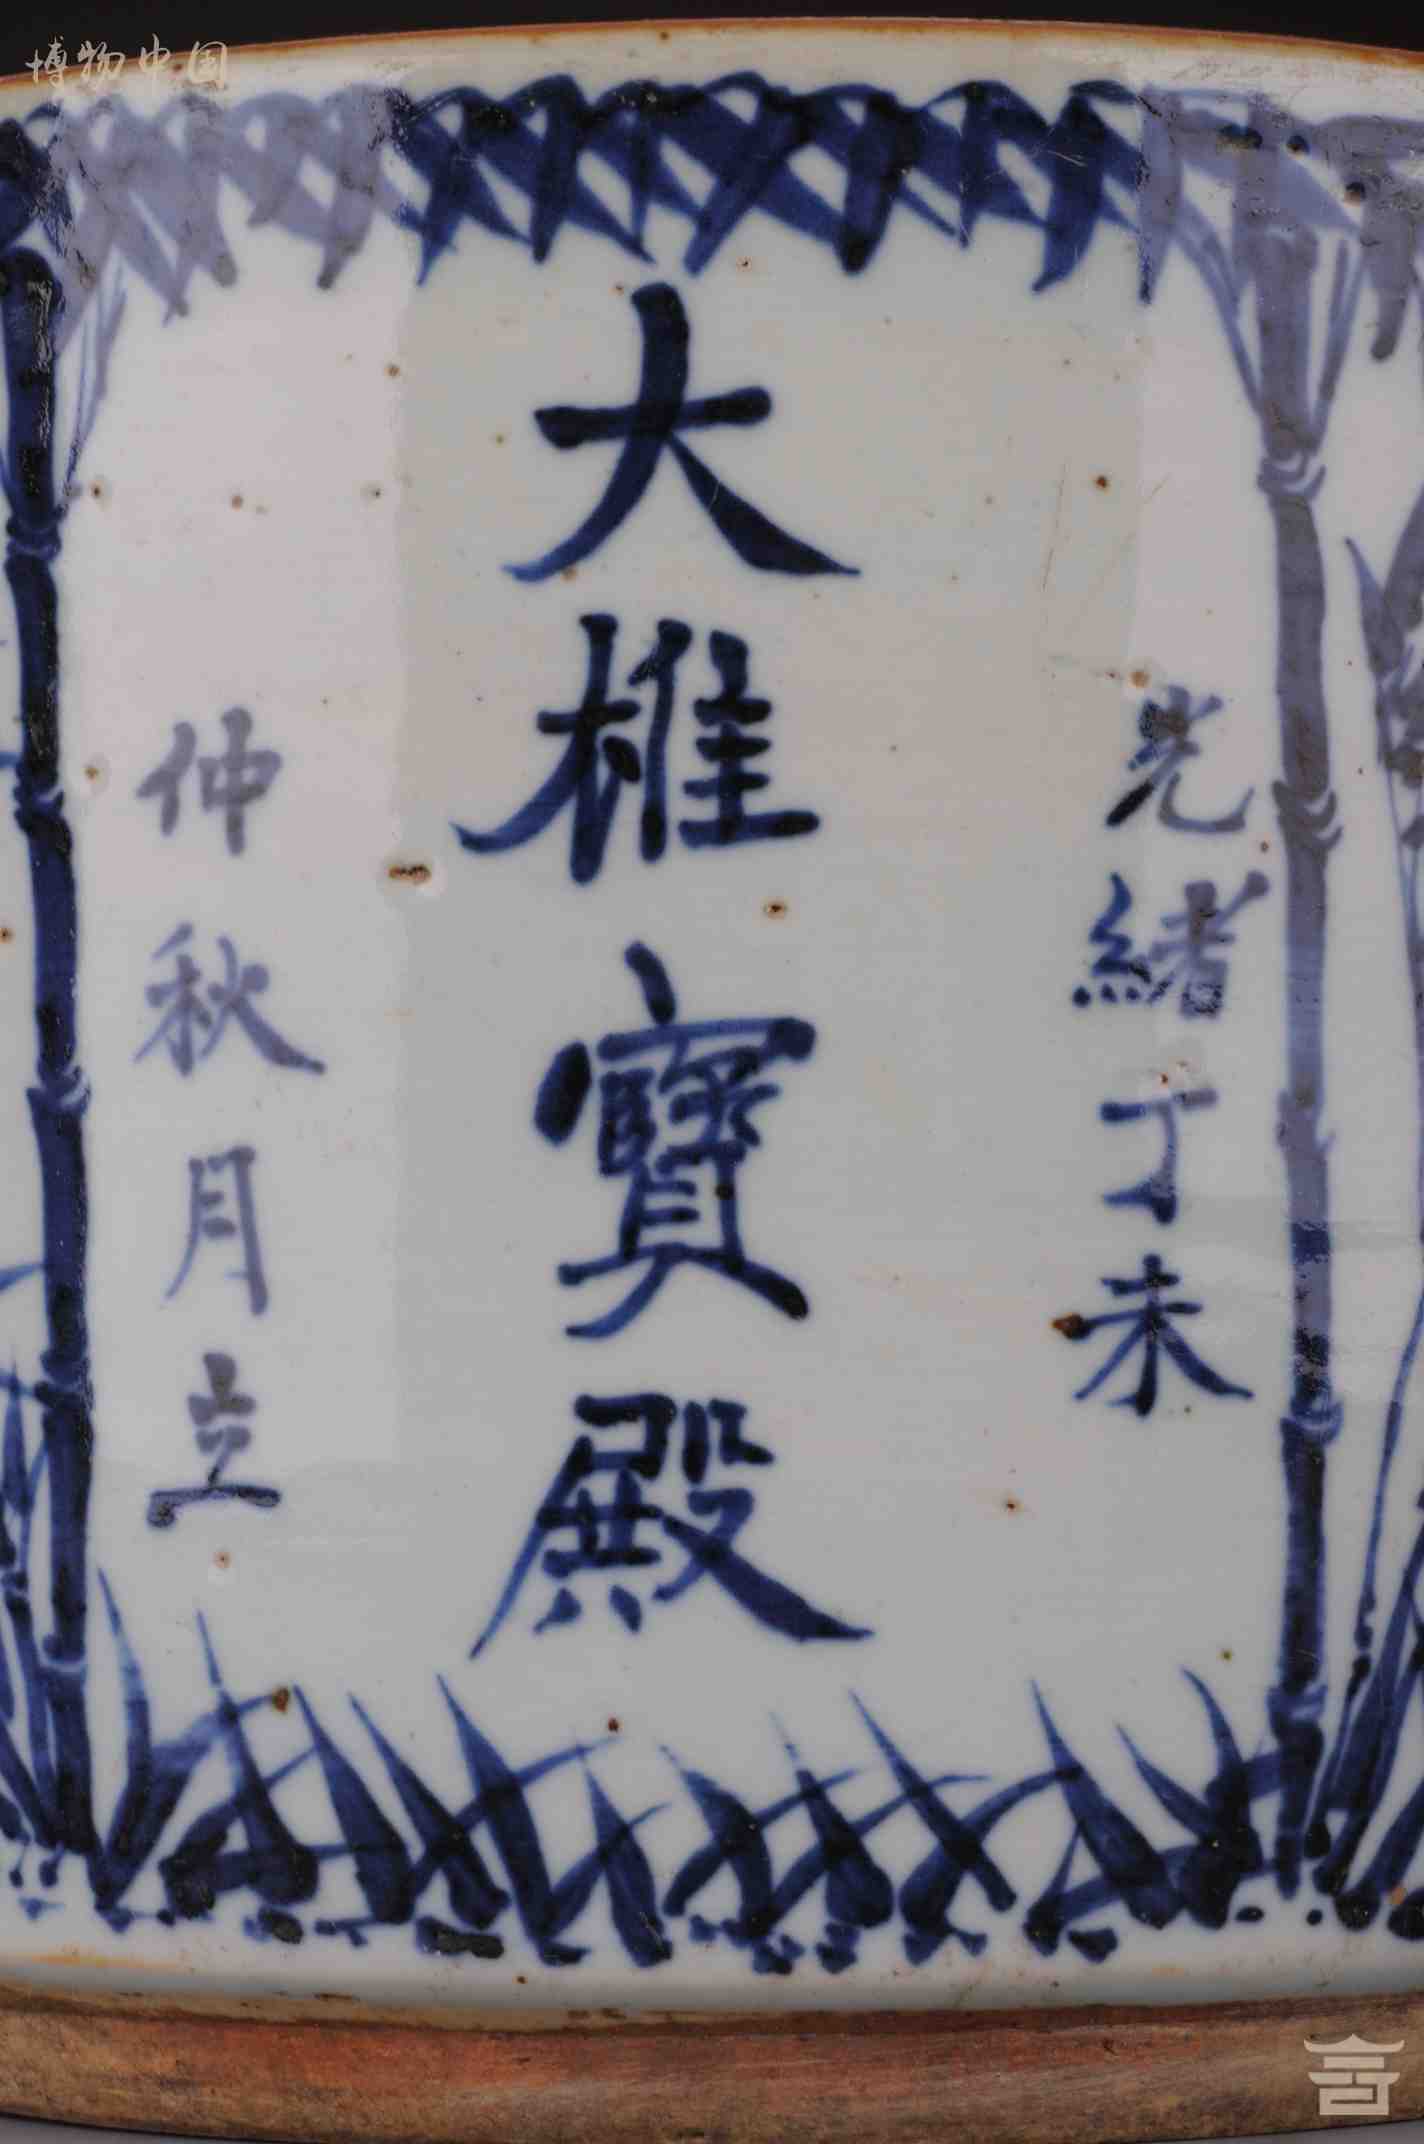 博物中国
光緒丁未
大椎寳殿
仲秋月立